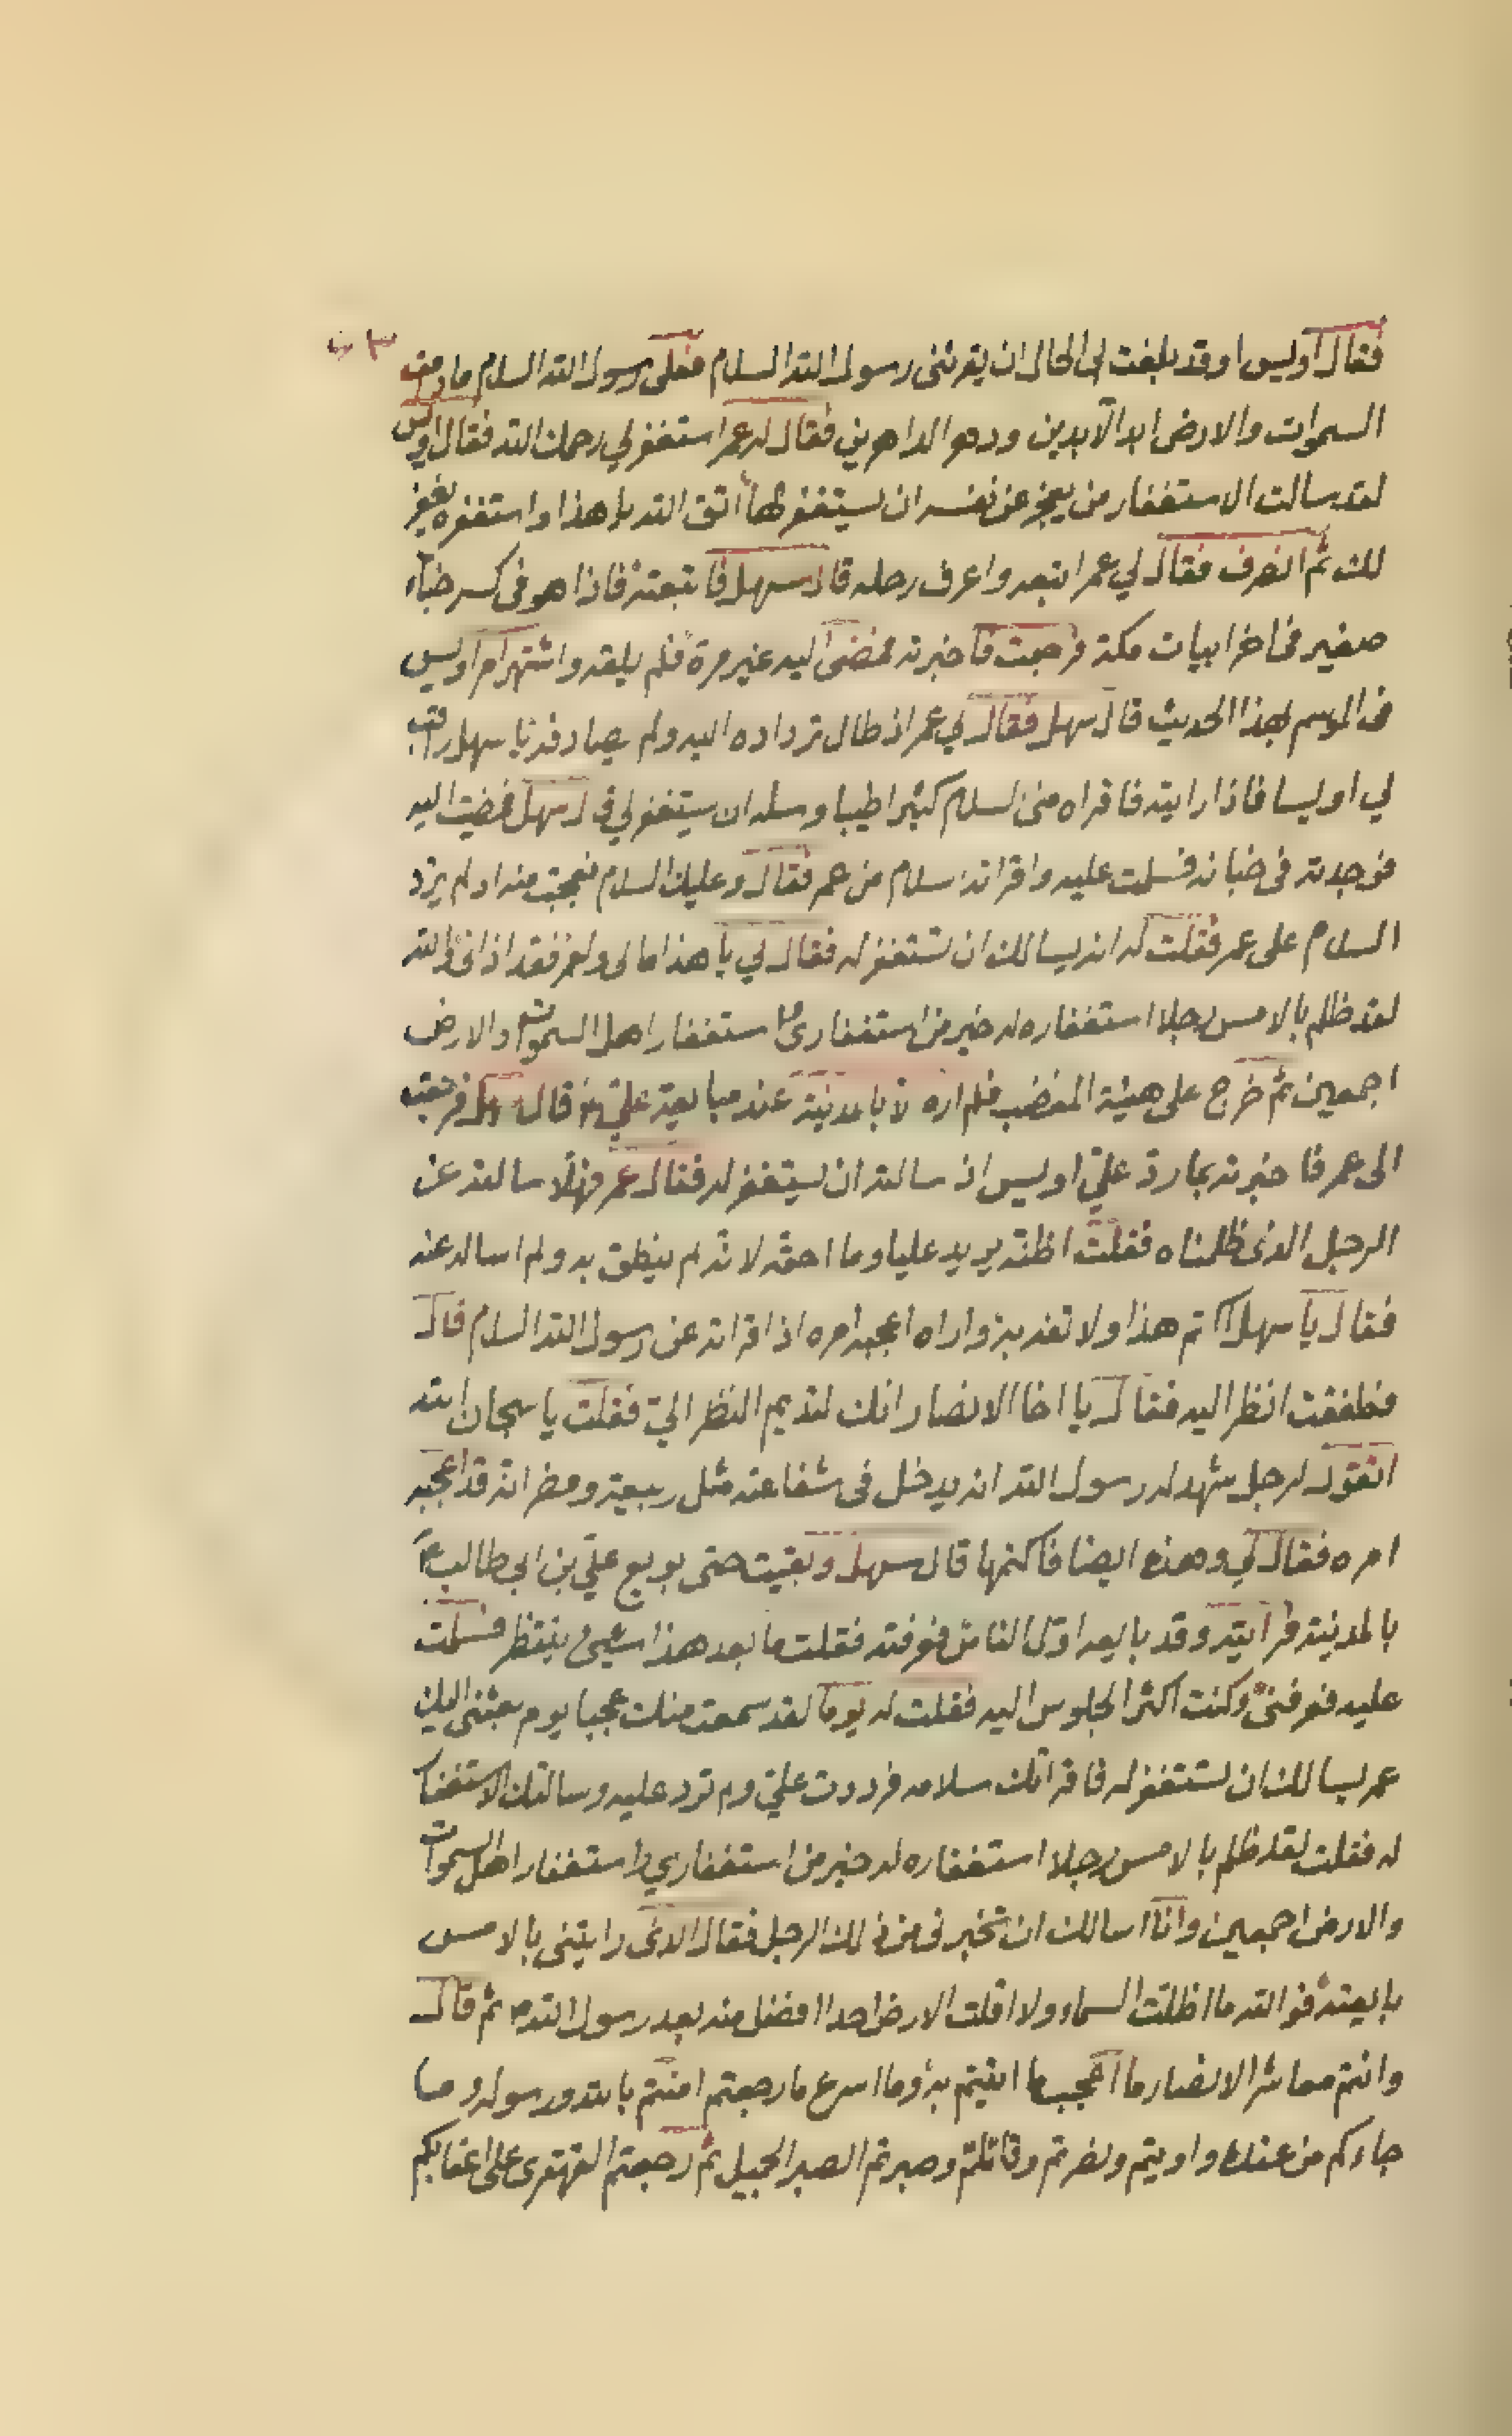 فقال اويس او قد بلغت لي الحال ان يقرئنى رسول الله السلام فعلى رسول الله السلام ما دامت
السموات والارض ابد الآبدين ودهو الداهرين فقال له عمر استغفر لي رحمك الله فقال اويس
لقد سالت الاستغفار من يعجز عن نفسه ان يستغفر لها اتق الله يا هذا واستغفره يغفر
لك ثم انصرف فقال لي عمر اتبعه واعرف رحله قال سهل فاتبعته فاذا هو فى كسر خباء
صغير فى اخر ابيات مكة فرجعت فاخبرته فمضى اليه غير مرة فلم يلقه واشتهر امر اويس
فى الموسم بهذا الحديث قال سهل فقال لي عمر اذ طال ترداده اليه ولم يصادفه يا سهل راقب
لي اويسا فاذا رايته فاقراه منى السلام كثيرا طيبا وسله ان يستغفر لي قال سهل فمضيت اليه
فوجدته فى خبائه فسلمت عليه واقراته سلام من عمر فقال وعليك السلام فعجبت منه اذ لم يرد
السلام على عمر فقلت له انه يسالك ان تستغفر له فقال لي يا هذا ما لى ولعمر فقد اذانى والله
لقد ظلم بالامس رجلا استغفاره له خير من استغفارى واستغفار اهل السموات والارض
اجمعين ثم خرج على هيئة المغضب فلم اره الا بالمدينة عند مبايعة علي قال سهل فرجعت
الى عمر فاخبرته بما رد علي اويس اذ سالته ان يستغفر له فقال عمر فهلا سالته عن
الرجل الذى ظلمناه فقلت اظنه يريد عليا وما احقه لانه لم ينطق به ولم اساله عنه
فقال يا سهل اكتم هذا ولا تعد به واراه اعجبه امره اذ اقراته عن رسول الله السلام قال
فطفقت انظر اليه فقال يا اخا الانصار انك لتديم النظر الي فقلت يا سبحان الله
اتقول لرجل شهد له رسول الله انه يدخل فى شفاعته مثل ربيعة ومضر انه قد اعجبه
امره فقال لي وهذه ايضا فاكتمها قال سهل وبقيت حتى بويع علي بن ابي طالب
بالمدينة فرايته وقد بايعه اول الناس فعرفته فقلت ما بعد هذا شيء ينتظر فسلمت
عليه فعرفنى وكنت اكثر الجلوس اليه فقلت له يوما لقد سمعت منك عجبا يوم بعثنى اليك
عمر يسالك ان تستغفر له فاقراتك سلامه فرددت علي ولم ترد عليه وسالتك الاستغفار
له فقلت لقد ظلم بالامس رجلا استغفاره له خير من استغفاري واستغفار اهل السموات
والارض اجمعين وانا اسالك ان تخبرنى من ذلك الرجل فقال الذى رايتنى بالامس
بايعته فو الله ما اظلت السماء ولا اقلت الارض احدا افضل منه بعد رسول الله ثم قال
وانتم معاشر الانصار ما اعجب ما اتيتم به وما اسرع ما رجعتم امنتم بالله ورسوله وما
جاءكم من عنده واويتم ونصرتم وقاتلتم وصبرتم الصبر الجميل ثم رجعتم القهقرى على اعقابكم